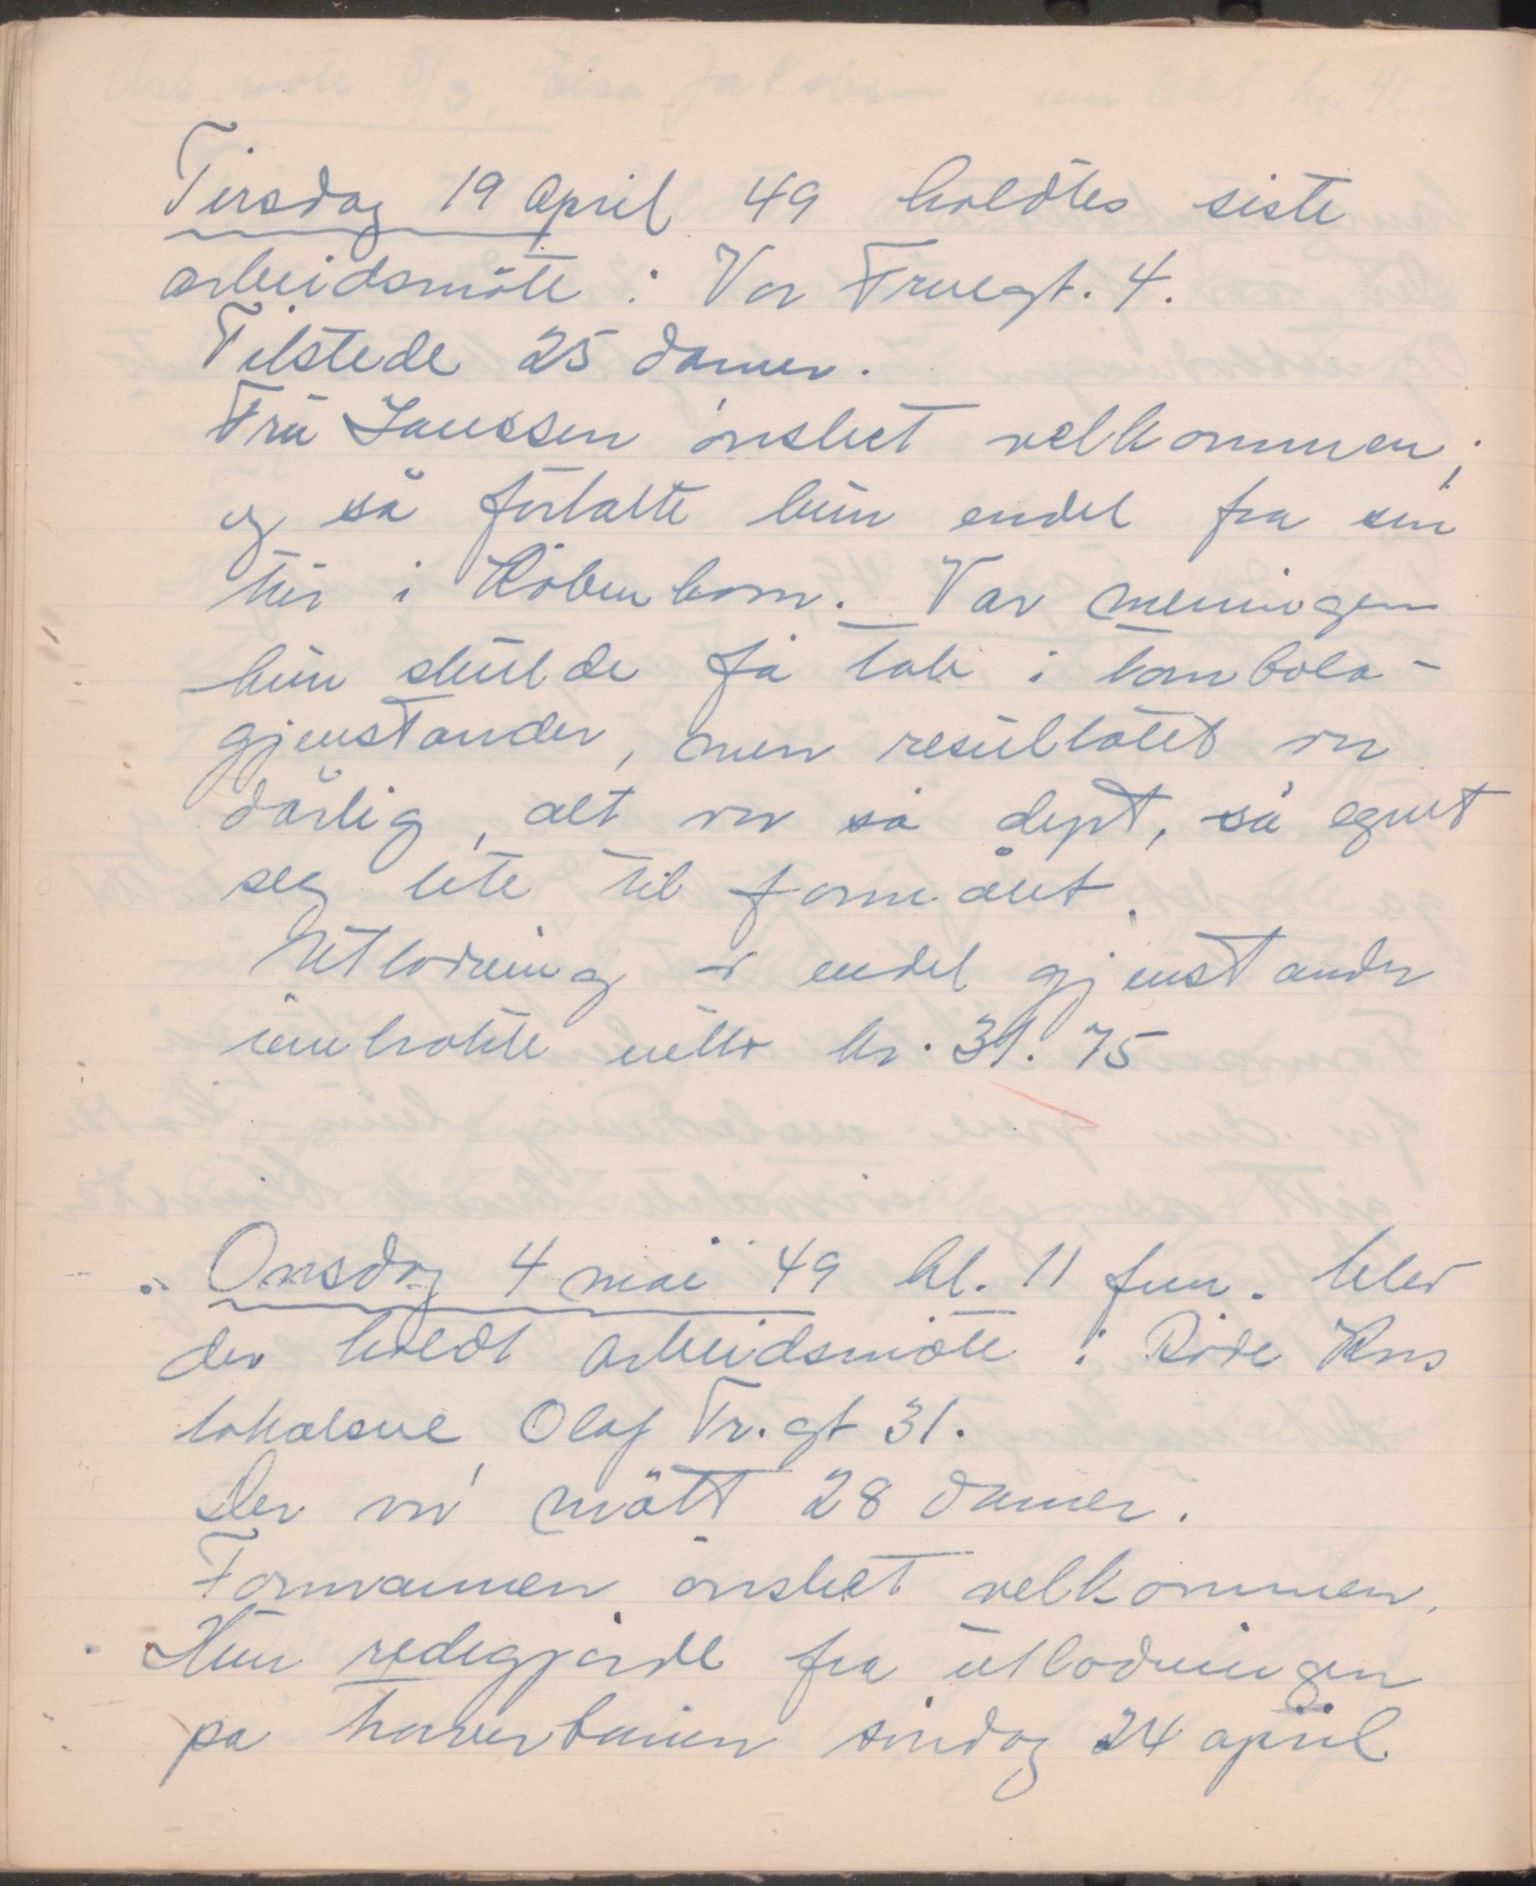 Tirsdag 19 April 49 holdtes siste
arbeidsmöte i Vor Fruegt. 4.
Tilstede 25 damer.
Fru Janssen ønsket velkommen,
og så fortalte hun endel fra sin
tur i Köbenhavn. Var meningen
hun skulde få tak i tombola-
gjenstander, men resultatet var
dårlig, alt var så dyrt, så egnet
seg lite til formålet.
Utlodning av endel gjenstander
innbrakte netto kr. 31.75
Onsdag 4 mai 49 kl. 11 fm. blev
der holdt arbeidsmöte i Röde Kors
lokalene, Olaf Tr.gt 31.
Der var mött 28 damer.
Formannen ønsket velkommen.
Hun redegjorde fra utlodningen
på travbanen söndag 24 april